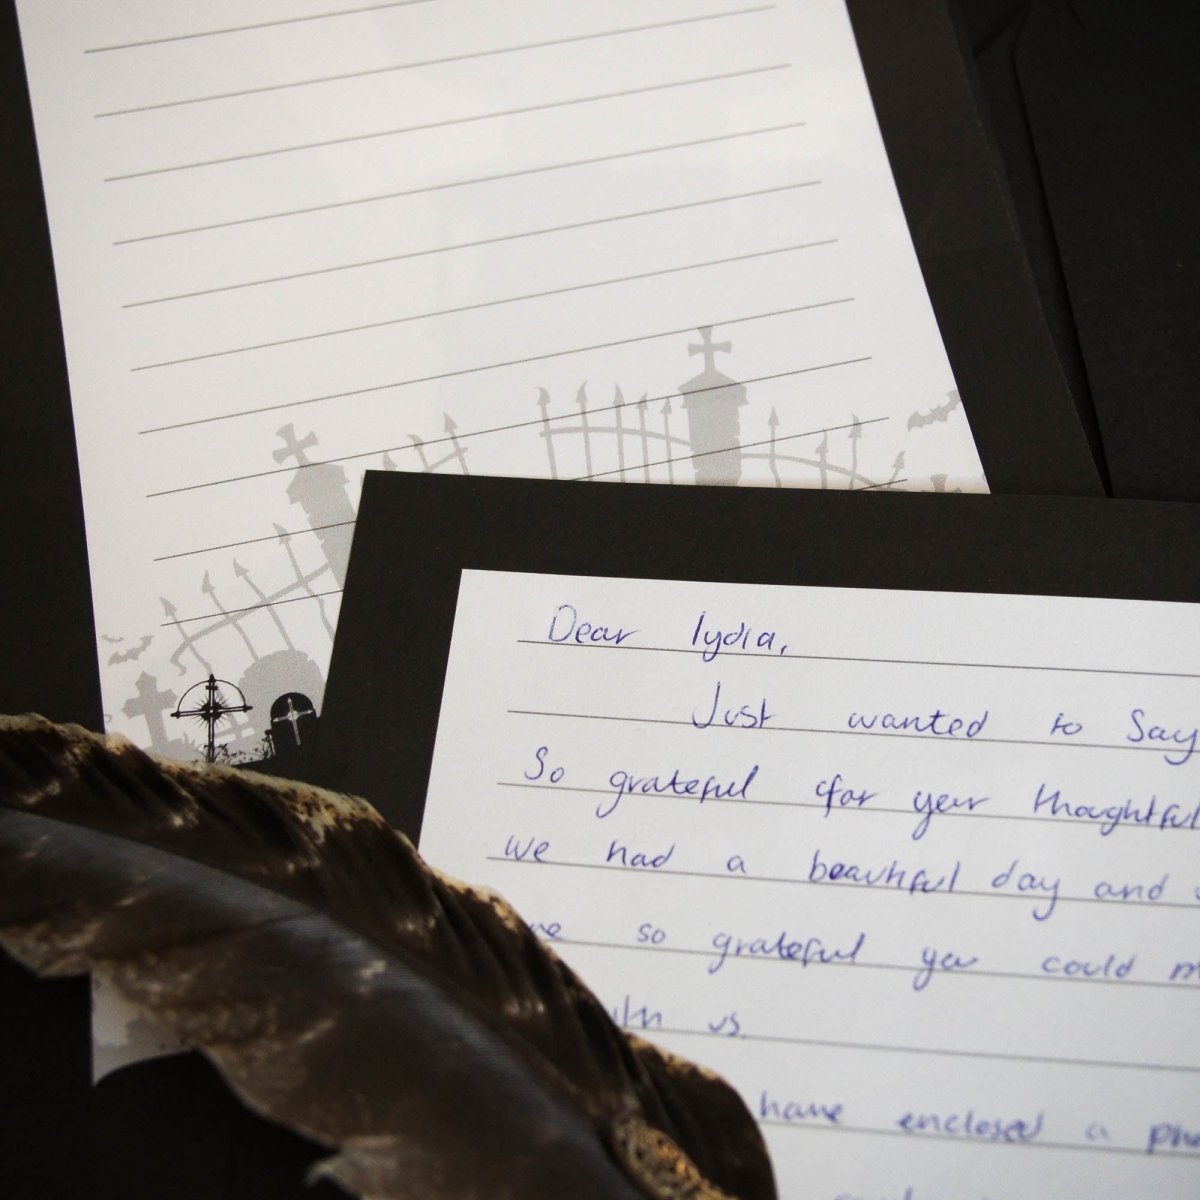 Dear lydia,
Just wanted to Say
So grateful for your thoughtful
we had a beautiful day and
so grateful you could
us.
have enclosed a